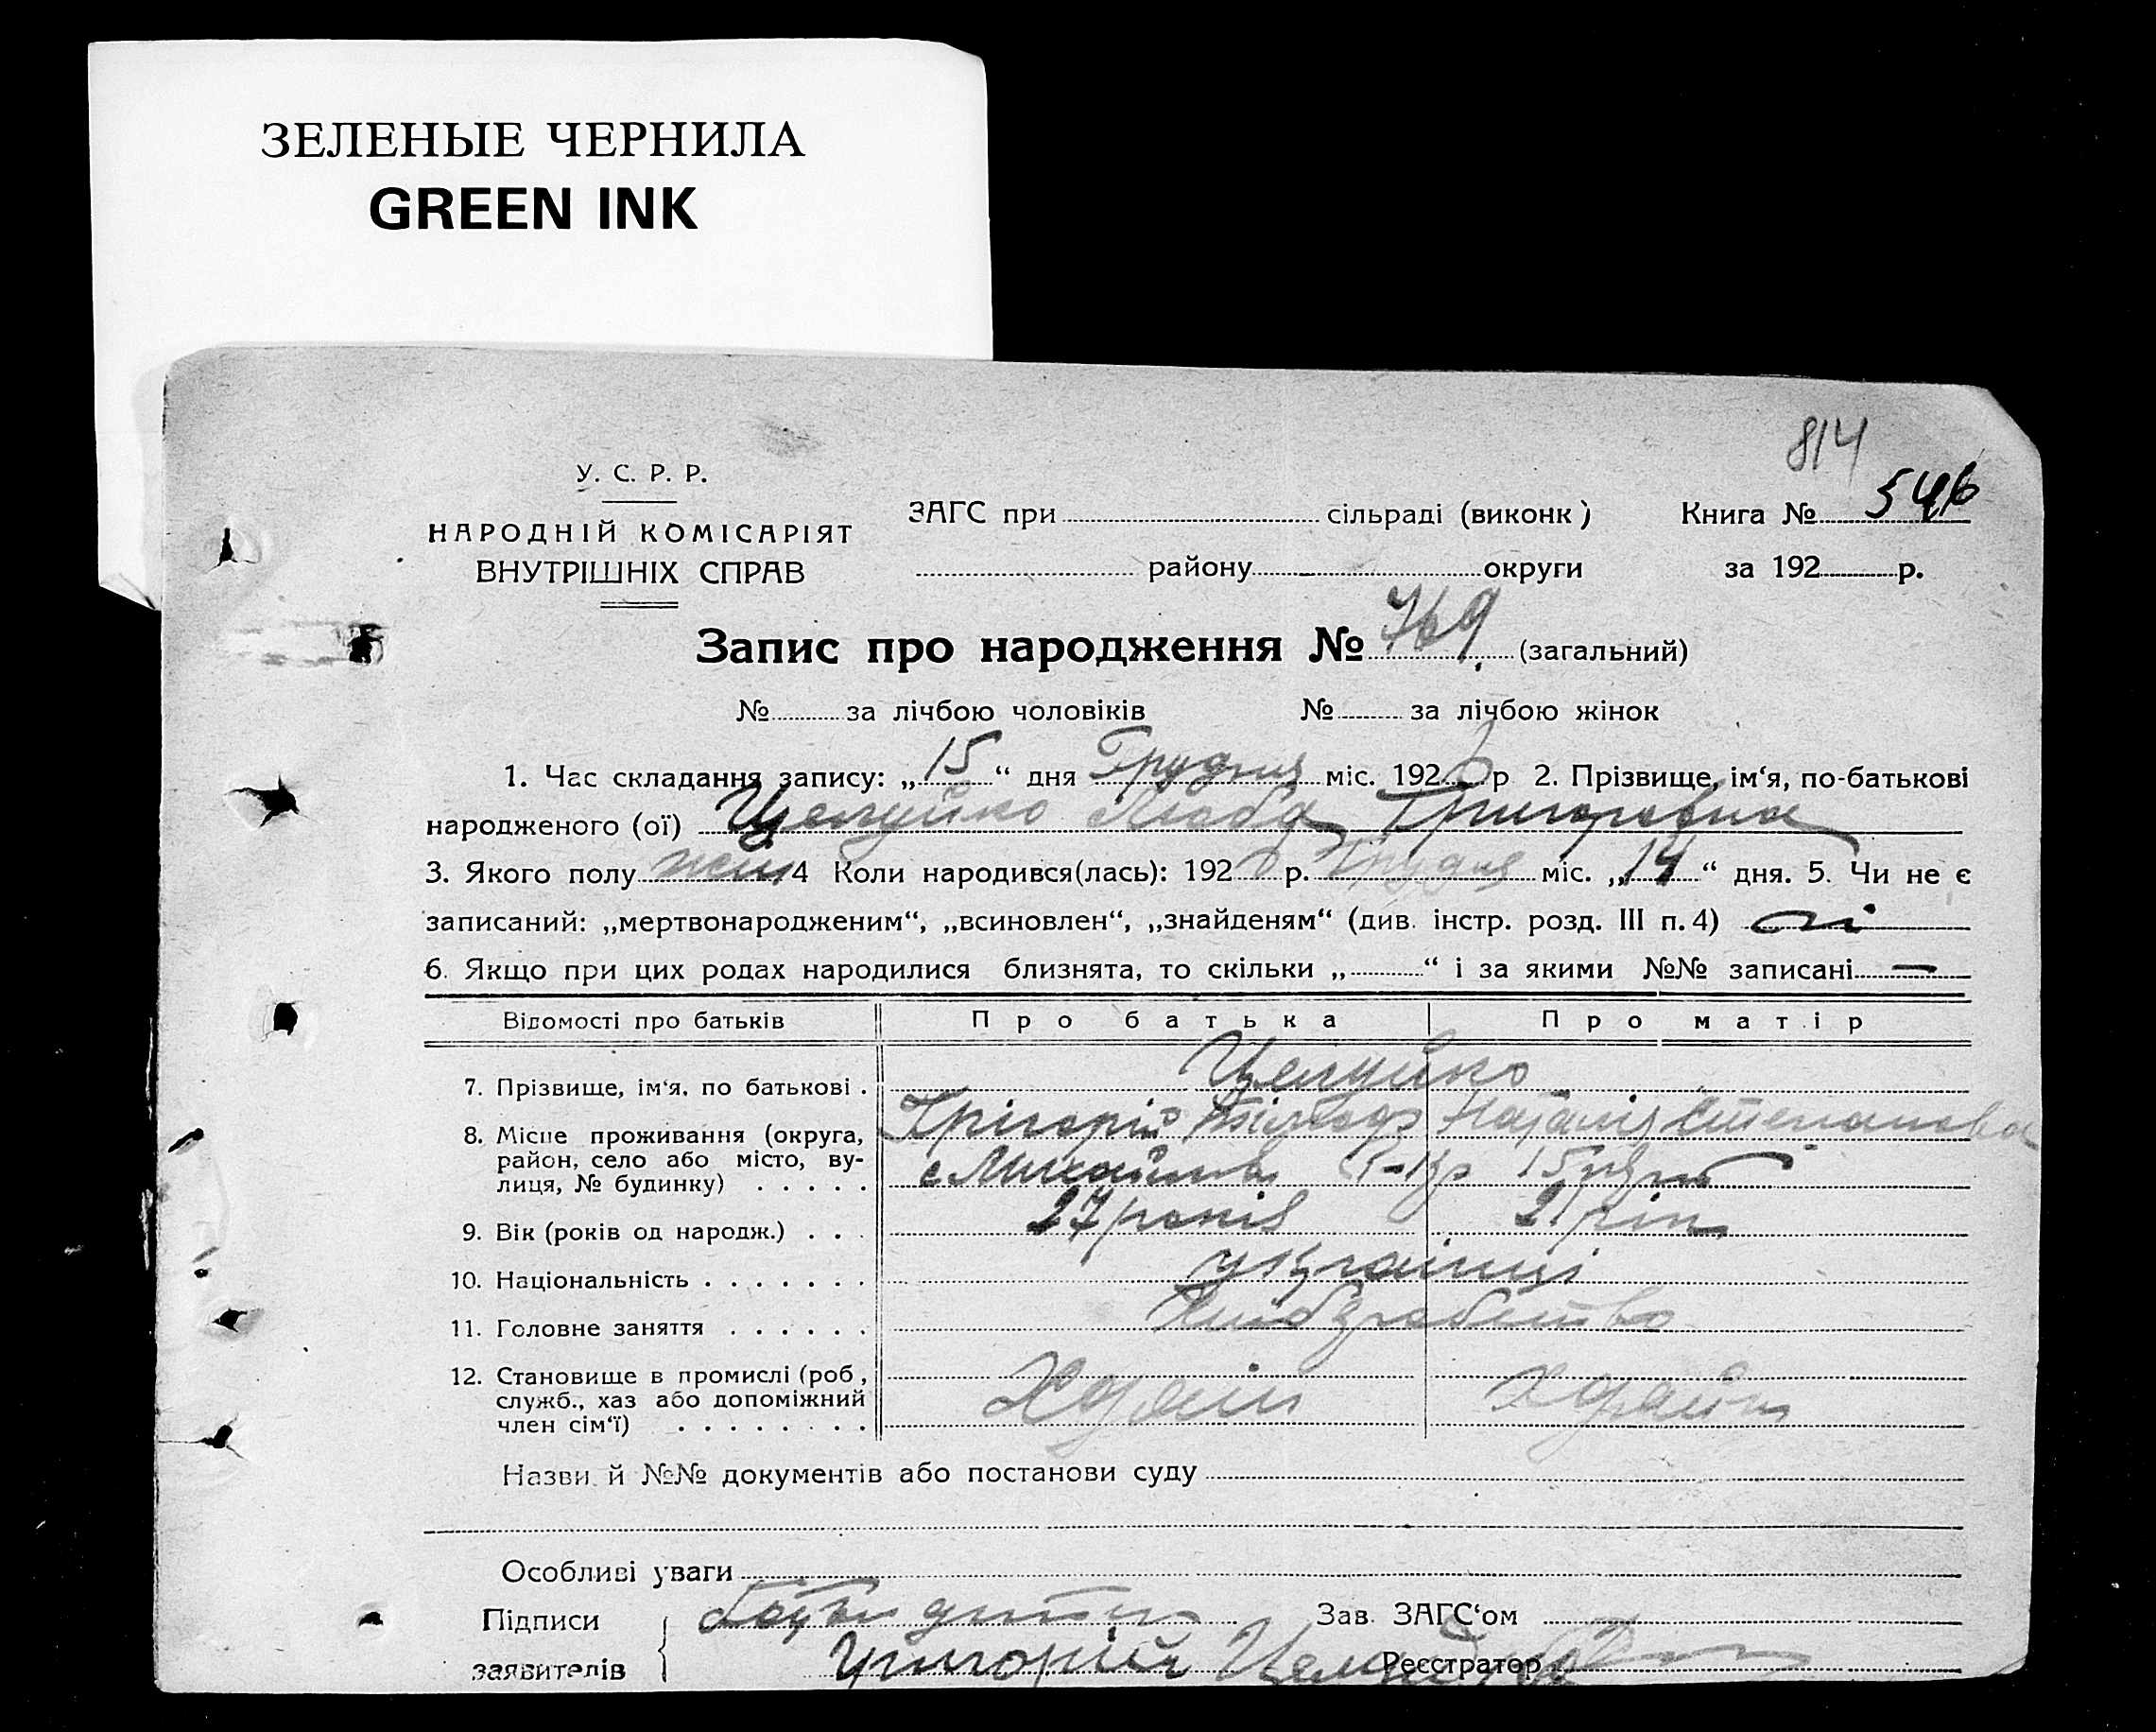 ЗЕЛЕНЫЕ ЧЕРНИЛА
GREEN INK
814
У. С. Р. Р.
НАРОДНІЙ КОМІСАРІЯТ
ВНУТРІШНІХ СПРАВ
ЗАГС при сільраді (виконк) Книга № 546
району округи за 192 р.
Запис про народження № 769 (загальний)
№ за лічбою чоловіків № за лічбою жінок
1. Час складання запису: „15“ дня Грудня міс. 192 р 2. Прізвище, ім‘я, по-батькові
народженого (ої) Целуйко Люба Григоровна
3. Якого полу жін 4 Коли народився(лась): 192 р. Грудня міс. „14“ дня. 5. Чи не є
записаний: „мертвонародженим“, „всиновлен“, „знайденям“ (див. інстр. розд. III п. 4) ні
6. Якщо при цих родах народилися близнята, то скільки „ “ і за якими №№ записані —
Відомості про батьків Про батька Про матір
7. Прізвище, ім‘я, по батькові . Целуйко
Григорій Наталія Степанова
8. Місце проживання (округа,
район, село або місто, ву-
лиця, № будинку) . . . . . с
9. Вік (років од народж.) . . . 27 років 21 рік
10. Національність . . . . . . . українці
11. Головне заняття . . . . . . Хліборобство
12. Становище в промислі (роб,
служб., хаз або допоміжний
член сім‘ї) . . . . . . . .
Назви й №№ документів або постанови суду
Особливі уваги
Підписи Зав. ЗАГС‘ом
заявителів Григорій Целуйко Реєстратор